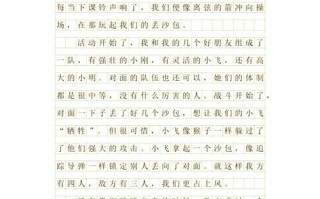 每当下课铃声响了，我们便像离弦的箭冲向操
场，在那玩起我们的丢沙包。
活动开始了，我和我的几个好朋友组成了
一队，有强壮的小刚，有灵活的小飞，还有高
大的小明。对面的队伍也还可以，她们的体制
都是很中等，没有什么厉害的人。战斗开始了，
对面一下子丢了好几个沙包，想让我们的小飞
“牺牲”。但很可惜，小飞像猴子一样躲过了
了他们强大的攻击。小飞拿起一个沙包，像追
踪导弹一样锁定别人丢向了对面。就这样我方
有四人，敌方有三人，我们更占上风。